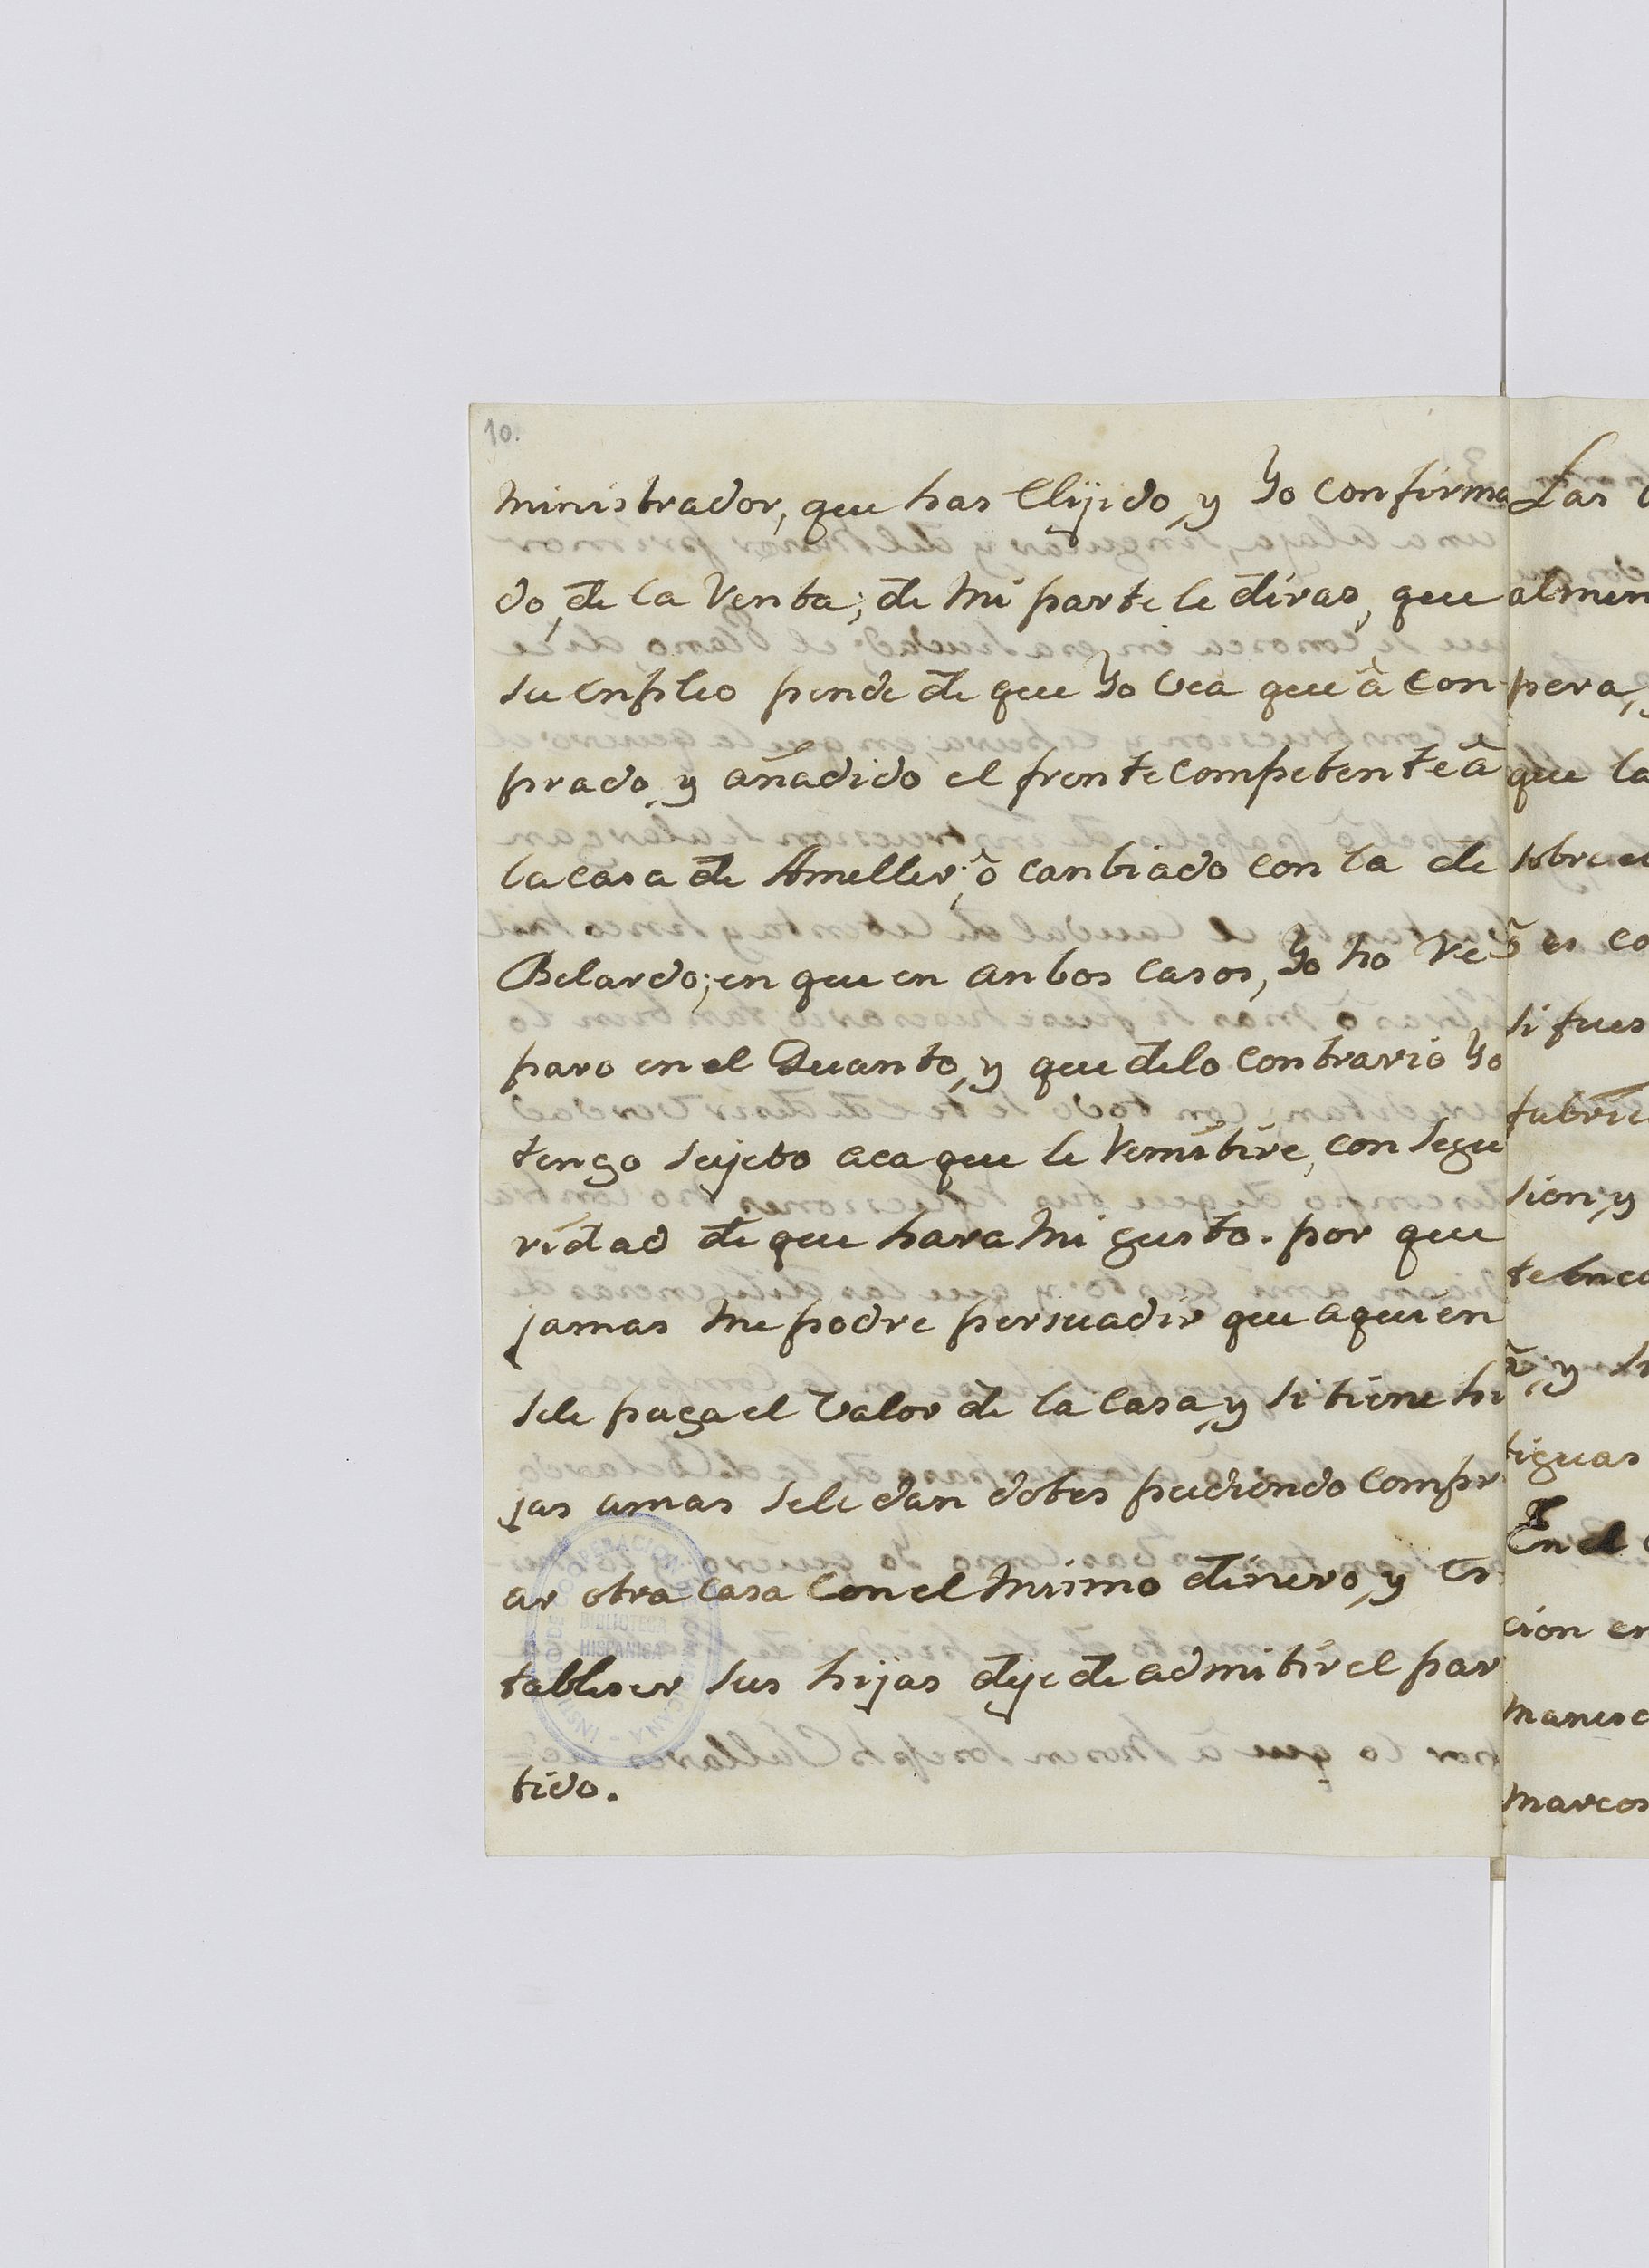 10.
ministrador, que has Elijido, y Yo confirma
do, de la Venta; de mi parte le diras, que
su enpleo pende de que Yo vea que â con
prado, y añadido el frente competente â
la casa de Ameller; ô canbiado con la de
Belardo; en que en anbos casos, Yo no Re
paro en el Quanto, y que delo contrario Yo
tengo sujeto aca que le Remitire, con segu
ridad de que hara mi gusto. por que
jamas me podre persuadir que aquien
sele paga el Valor de la casa, y si tiene hi
jas amas sele dan dotes pudiendo compr
ar otra casa con el mismo dinero, y es
tableser sus hijas deje de admitir el par
tido.
Las
almen
pera,
que la
sobre
ô es co
si fues
fabric
sion, y
te
â, y
tiguas
En el
cion en
manesc
marcos
BIBLIOTECA
HISPANICA